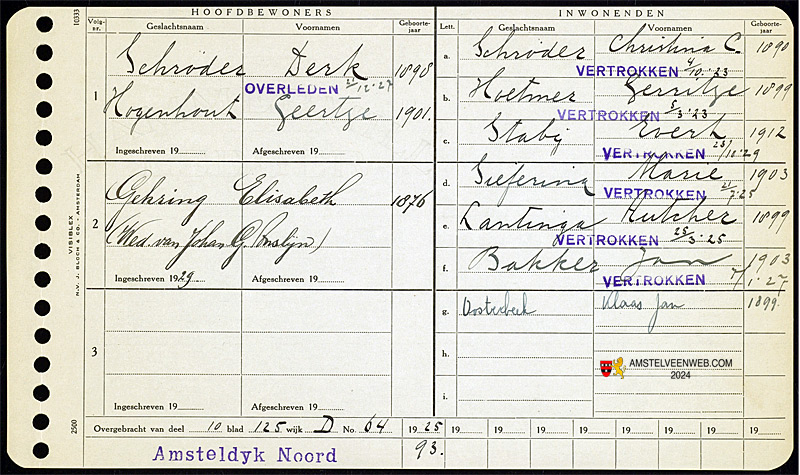 HOOFDBEWONERS
Volg-nr. Geslachtsnaam Voornamen Geboorte-jaar
1
Schröder Derk 1898
OVERLEDEN 21/12-27
Hogenhout Geertje 1901.
Ingeschreven 19 Afgeschreven 19
2
Gehring Elisabeth 1876
(Wed. van Johan G.
Ingeschreven 1929 Afgeschreven 19
3
Ingeschreven 19 Afgeschreven 19
INWONENDEN
Lett. Geslachtsnaam Voornamen Geboorte-jaar
a. Schröder Christina C. 1890
VERTROKKEN 4/10-'23
b. Hoetmer Gerritje 1899
VERTROKKEN 5/3-'23
c. Stabij Evert 1912
VERTROKKEN 23/10-29
d. Siefering Marie 1903
VERTROKKEN 21/7-25
e. Lantinga Hutcher 1899
VERTROKKEN 25/3-25
f. Bakker Jan 1903
VERTROKKEN 7/1-27
g. Oosterbeek Klaas Jan 1899.
h.
i.
AMSTELVEENWEB.COM
2024
Overgebracht van deel 10 blad 125 wijk D No. 64 1925 19 19 19 19 19 19 19 19
Amsteldyk Noord 93.
10333
VISIBLEX
N.V. J. BLOCH & CO. - AMSTERDAM
2500